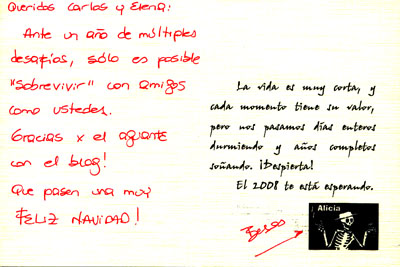 Queridos Carlos y Elena:
Ante un año de múltiples
desafíos, sólo es posible
"sobrevivir" con amigos
como ustedes.
Gracias x el aguante
con el blog!
Que pasen una muy
FELIZ NAVIDAD!
La vida es muy corta, y
cada momento tiene su valor,
pero nos pasamos días enteros
durmiendo y años completos
soñando. ¡Despierta!
El 2008 te está esperando.
Besos
Alicia